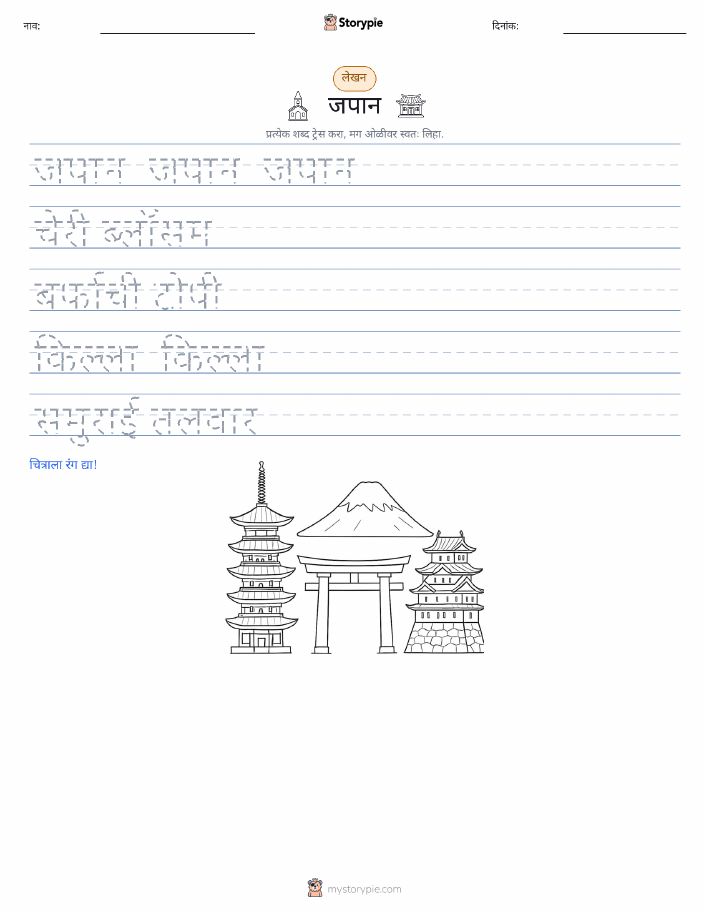 नाव: Storypie दिनांक:
लेखन
जपान
प्रत्येक शब्द ट्रेस करा, मग ओळीवर स्वतः लिहा.
जपान जपान जपान
चेरी ब्लॉसम
बर्फाची टोपी
किल्ला किल्ला
समुराई तलवार
चित्राला रंग द्या!
mystorypie.com